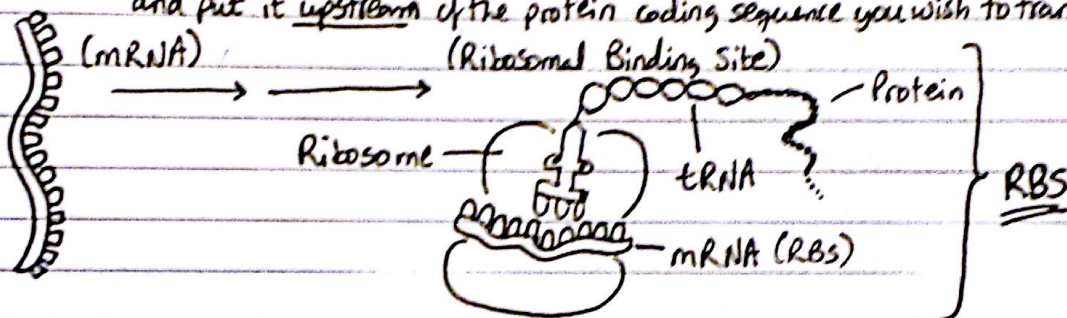 and put it upstream of the protein coding sequence you wish to tran
(mRNA)
(Ribosomal Binding Site)
Protein
Ribosome
tRNA
RBS
mRNA (RBS)